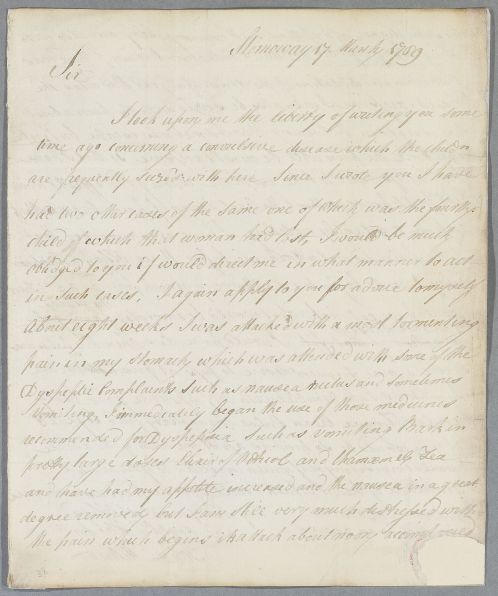 Stornoway 17 March 1789
Sir
I took upon me the liberty of writing you some
time ago concerning a convulsive disease which the children
are frequently seized with here. Since I wrote you I have
had two other cases of the same one of which was the fourth
child of which that woman had lost, I would be much
obliged to you if would direct me in what manner to act
in such cases. I again apply to you for advice to myself
About eight weeks I was attacked with a most tormenting
pain in my stomach which was attended with some of the
Dyspeptic Complaints such as nausea and sometimes
vomiting, I immediately began the use of those medicines
recommended for Dyspepsia such as vomiting Bark in
pretty large doses Elixir of Vitriol and Chamomile Tea
and have had my appetite increased and the nausea in a great
degree removed but I am still very much distressed with
the pain which begins its attack about noon